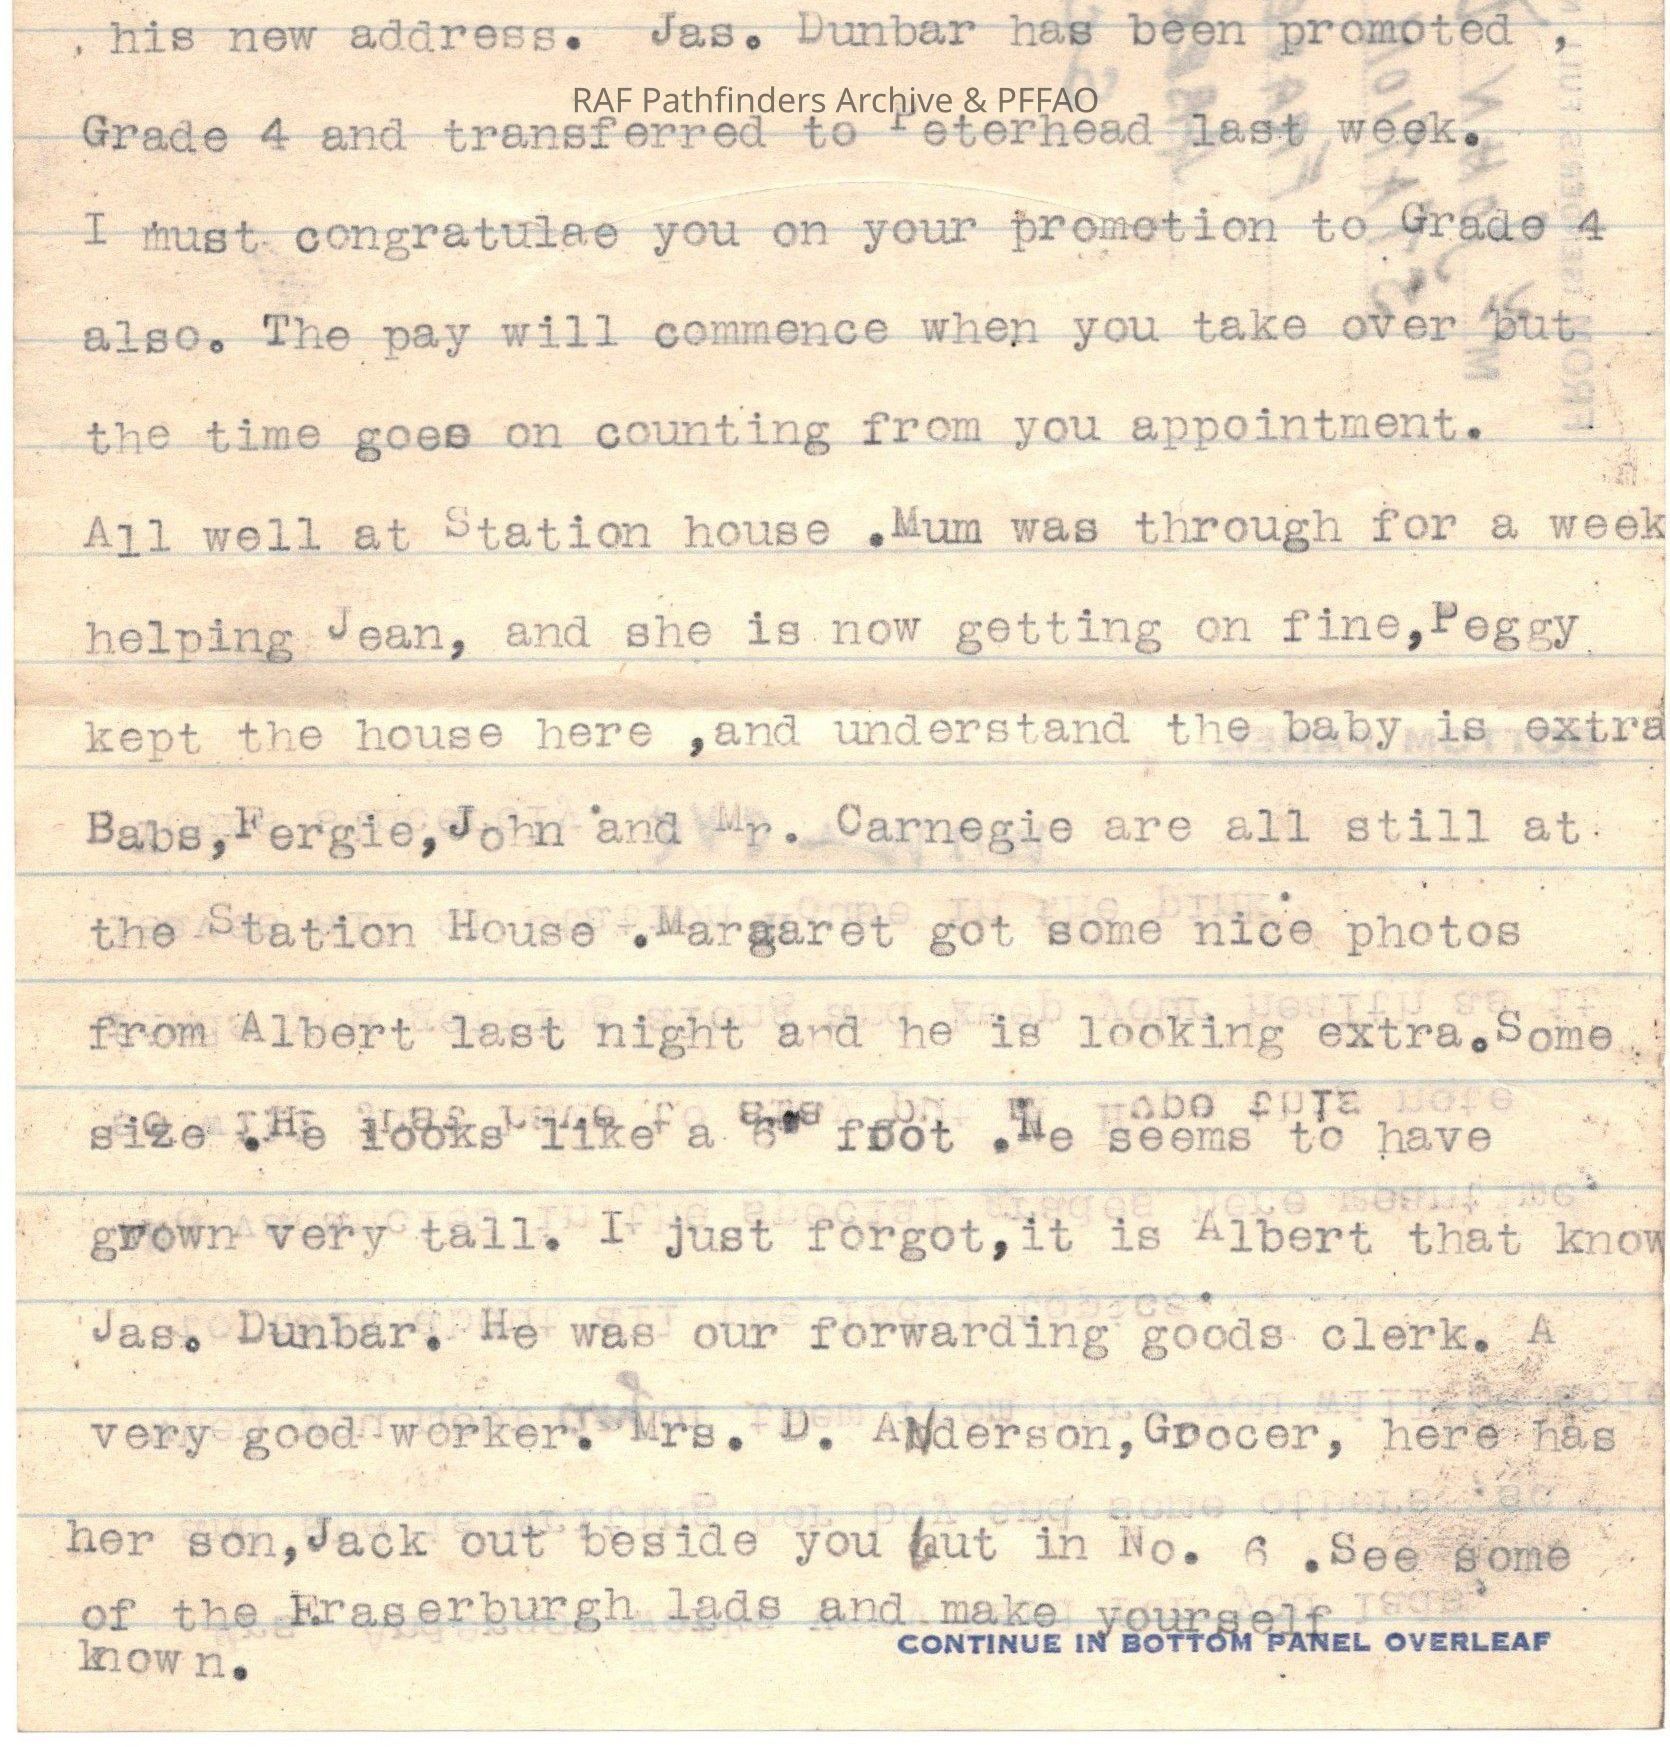 , his new address.  Jas. Dunbar has been promoted ,
RAF Pathfinders Archive & PFFAO
Grade 4 and transferred to Peterhead last week.
I must congratulae you on your promotion to Grade 4
also. The pay will commence when you take over but
the time goes on counting from you appointment.
All well at Station house .Mum was through for a week
helping Jean, and she is now getting on fine,Peggy
kept the house here ,and understand the baby is extra
Babs,Fergie,John and Mr. Carnegie are all still at
the Station House .Margaret got some nice photos
from Albert last night and he is looking extra.Some
size .He looks like a 6 foot .He seems to have
grown very tall. I just forgot,it is Albert that know
Jas. Dunbar. He was our forwarding goods clerk. A
very good worker. Mrs. D. ANderson,Grocer, here has
her son,Jack out beside you but in No. 6 .See some
of the Fraserburgh lads and make yourself
known.
CONTINUE IN BOTTOM PANEL OVERLEAF